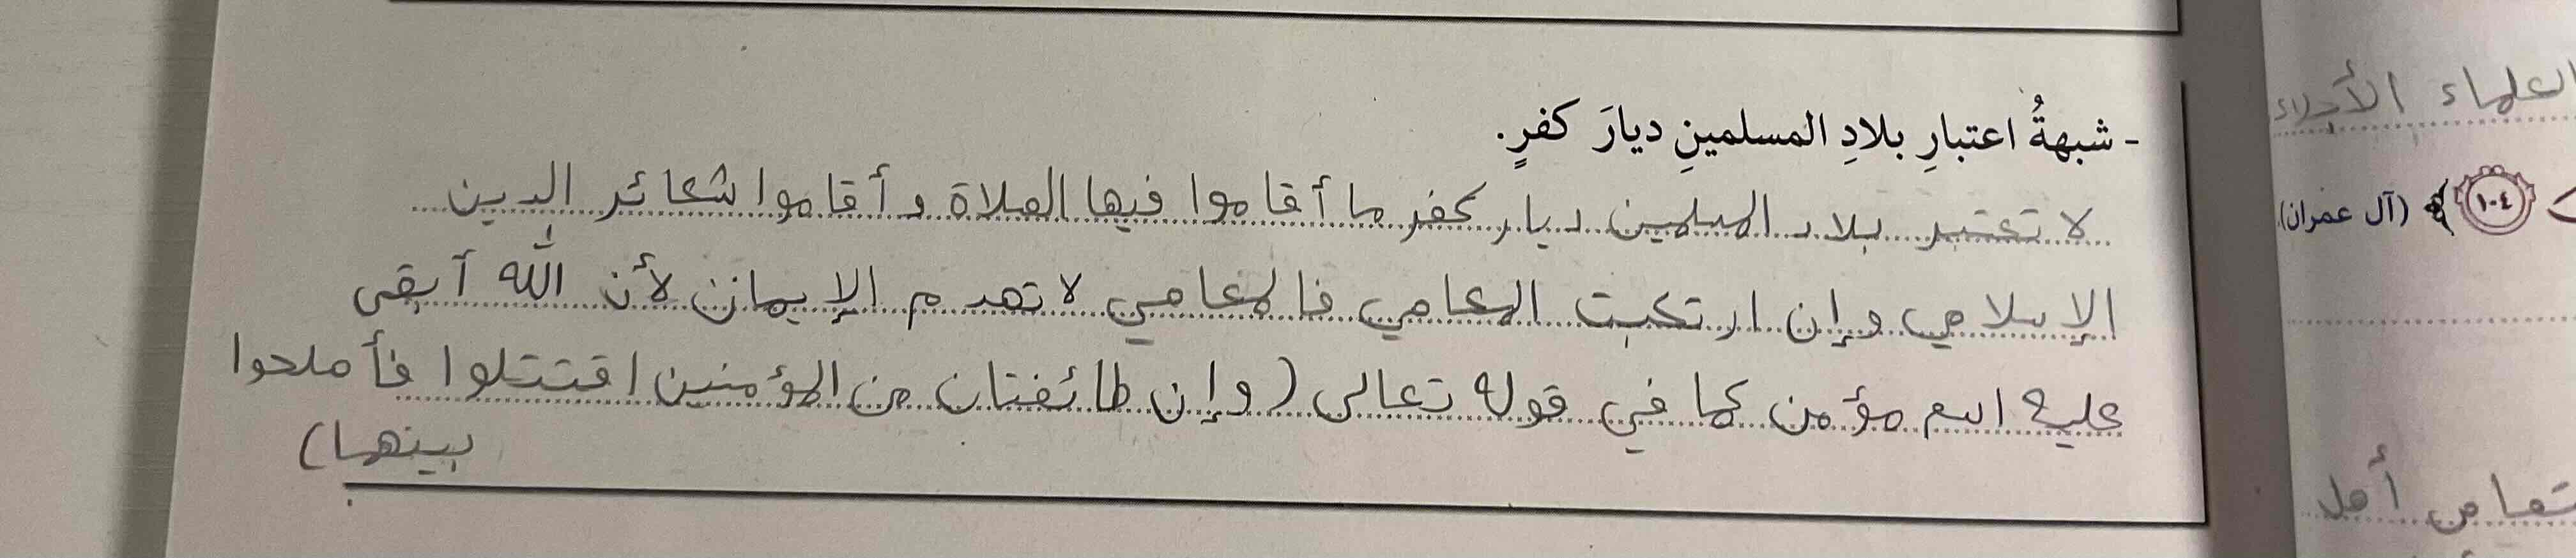 - شبهةُ اعتبارِ بلادِ المسلمينِ ديارَ كفرٍ.
لا تعتبر بلاد المسلمين ديار كفر ما أقاموا فيها الصلاة و أقاموا شعائر الدين
الإسلامي وإن ارتكبت المعاصي فالمعاصي لا تهدم الإيمان لأن الله أبقى
عليه اسم مؤمن كما في قوله تعالى (وإن طائفتان من المؤمنين اقتتلوا فأصلحوا
بينهما)
العلماء الأجلاء
﴿١٠٤﴾ (آل عمران).
أهل